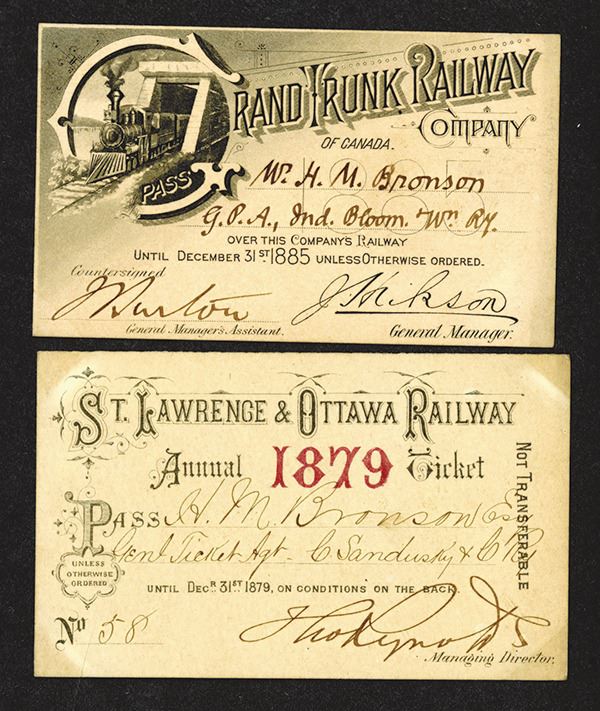 GRAND TRUNK RAILWAY
COMPANY
OF CANADA.
PASS
Mr. H. M. Bronson
G.P.A., Ind. Bloom. & Wn. Ry.
OVER THIS COMPANY'S RAILWAY
UNTIL DECEMBER 31ST 1885 UNLESS OTHERWISE ORDERED.
Countersigned
J Burton
J Hickson
General Manager's Assistant.
General Manager.
ST. LAWRENCE & OTTAWA RAILWAY
Annual 1879 Ticket
NOT TRANSFERABLE
PASS H. M. Bronson Esq
Genl Ticket Agt. C Sandusky & C Ry
UNLESS
OTHERWISE
ORDERED
UNTIL DECR. 31ST 1879, ON CONDITIONS ON THE BACK.
No 58
Managing Director.